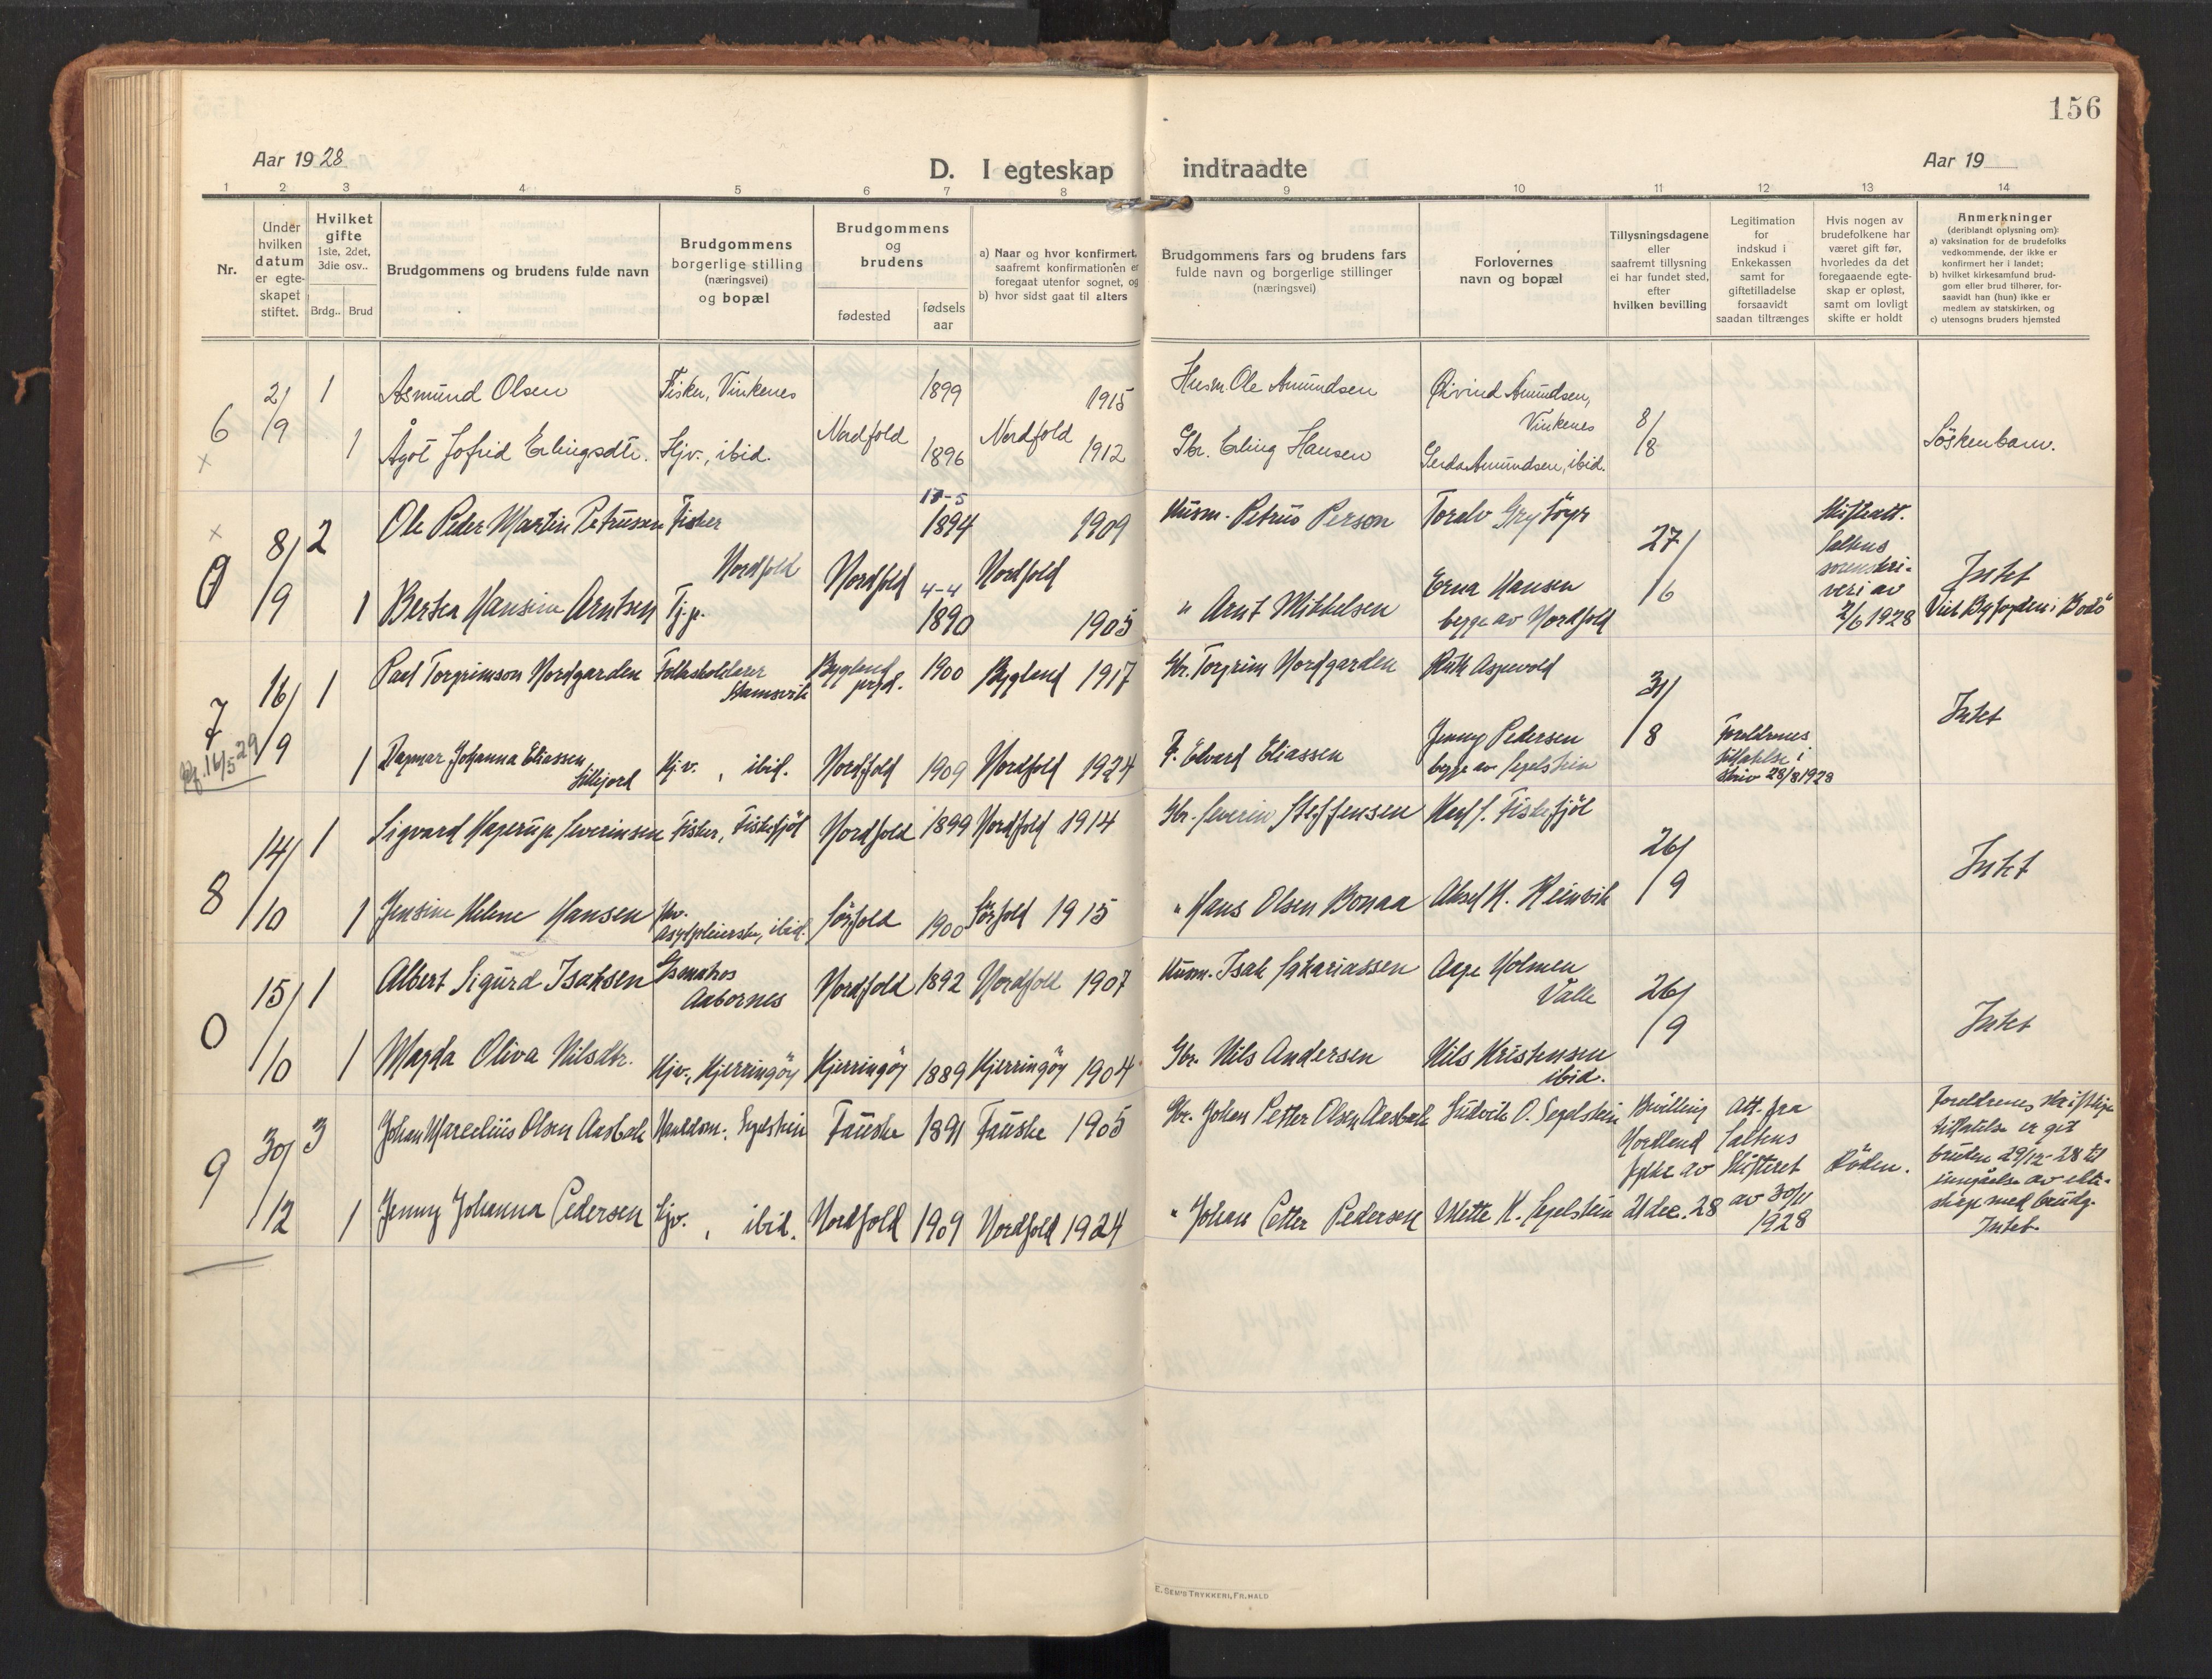 156
Aar 1928
D. I egteskap indtraadte
Aar 19
1 2 3 4 5 6 7 8 9 10 11 12 13 14
Nr.
Under hvilken datum er egteskapet stiftet.
Hvilket gifte 1ste, 2det, 3die osv..
Brdg.. Brud
Brudgommens og brudens fulde navn
Brudgommens borgerlige stilling (næringsvei) og bopæl
Brudgommens og brudens
fødested
fødsels aar
a) Naar og hvor konfirmert, saafremt konfirmationen er foregaat utenfor sognet, og
b) hvor sidst gaat til alters
Brudgommens fars og brudens fars fulde navn og borgerlige stillinger (næringsvei)
Forlovernes navn og bopæl
Tillysningsdagene eller saafremt tillysning ei har fundet sted, efter hvilken bevilling
Legitimation for indskud i Enkekassen samt for giftetilladelse forsaavidt saadan tiltrænges
Hvis nogen av brudefolkene har været gift før, hvorledes da det foregaaende egteskap er opløst, samt om lovligt skifte er holdt
Anmerkninger (deriblandt oplysning om):
a) vaksination for de brudefolks vedkommende, der ikke er konfirmert her i landet;
b) hvilket kirkesamfund brudgom eller brud tilhører, forsaavidt han (hun) ikke er medlem av statskirken, og
c) utensogns bruders hjemsted
6 2/9 1 Asmund Olsen Fisker, Vinkenes 1899 1915 Husm. Ole Amundsen Øivind Amundsen, Vinkenes 8/8
x 1 Ågot Jofrid Erlingsdtr. Hjv., ibid. Nordfold 1896 Nordfold 1912 Gbr. Erling Hansen Gerda Amundsen, ibid. Söskenbarn.
x 0 8/9 2 Ole Peder Martin Petrussen Fisker Nordfold 17-5 1894 1909 Husm. Petrus Person Toralv Grytöyr 27/6 Skifteatt. Saltens sorenskriveri av 2/6 1928
1 Berta Hansine Arntsen Tj.p. Nordfold 4-4 1890 Nordfold 1905 " Arnt Mikkelsen Erna Hansen begge av Nordfold Intet Viet Byfogden i Bodö
7 16/9 1 Paul Torgrimson Nordgarden Folkskolelærer Stamsvik Bygland prgd. 1900 Bygland 1917 Gbr. Torgrim Nordgarden Ruth Aspevold 31/8 Intet
16/5 29 1 Dagmar Johanna Eliassen Hj.v., ibid. Nordfold 1909 Nordfold 1924 F. Edvard Eliassen Jenny Pedersen begge av Segelstein Foreldrenes tillatelse i skriv 28/8 1928
8 14/10 1 Sigvard Hagerup Severinsen Fisker, Fiskefjöl Nordfold 1899 Nordfold 1914 Gbr. Severin Steffensen 26/9 Intet
1 Jensine Helene Hansen ibid. Sörfold 1900 Sörfold 1915 " Hans Olsen Bonaa Aksel H. Reinvik
0 15/10 1 Albert Sigurd Isaksen Aabornes Nordfold 1892 Nordfold 1907 Husm. Isak Sakariassen Aage Holmen Valle 26/9 Intet
1 Magda Oliva Nilsdtr. Hjv., Kjerringöy Kjerringöy 1889 Kjerringöy 1904 Gbr. Nils Andersen Nils Kristensen ibid.
9 30/12 3 Johan Marcelius Olsen Aasbak Handelsm. Segelstein Fauske 1891 Fauske 1905 Gbr. Johan Petter Olsen Aasbak Ludvik O. Segelstein Bevilling Nordland fylke av 21 dec. 28 Att. fra Saltens Skifteret av 30/11 1928 Döden. Foreldrenes skriftlige tillatelse er git bruden 29/12-28 til inngåelse av ekteskap med brudg. Intet.
1 Jenny Johanna Pedersen Hjv., ibid. Nordfold 1909 Nordfold 1924 " Johan Petter Pedersen Mette K. Segelstein
E. SEM'S TRYKKERI, FR.HALD